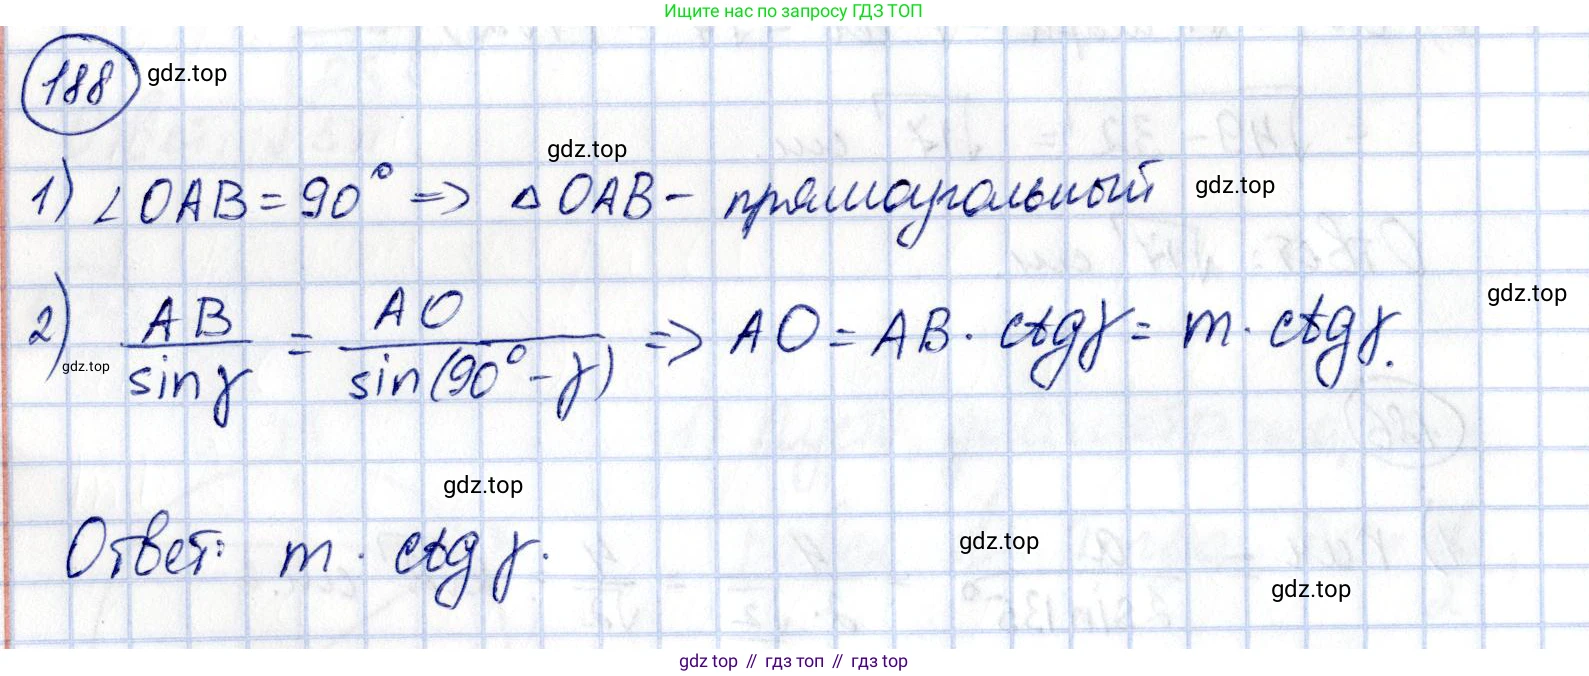 Ищите нас по запросу ГДЗ ТОП
188 gdz.top
gdz.top
1) ∠OAB = 90° => △OAB - прямоугольный gdz.top
gdz.top
2) AB/sin γ = AO/sin(90° - γ) => AO = AB · ctg γ = m · ctg γ.
gdz.top
gdz.top
Ответ: m · ctg γ.
gdz.top
gdz.top
gdz top // гдз топ // гдз top